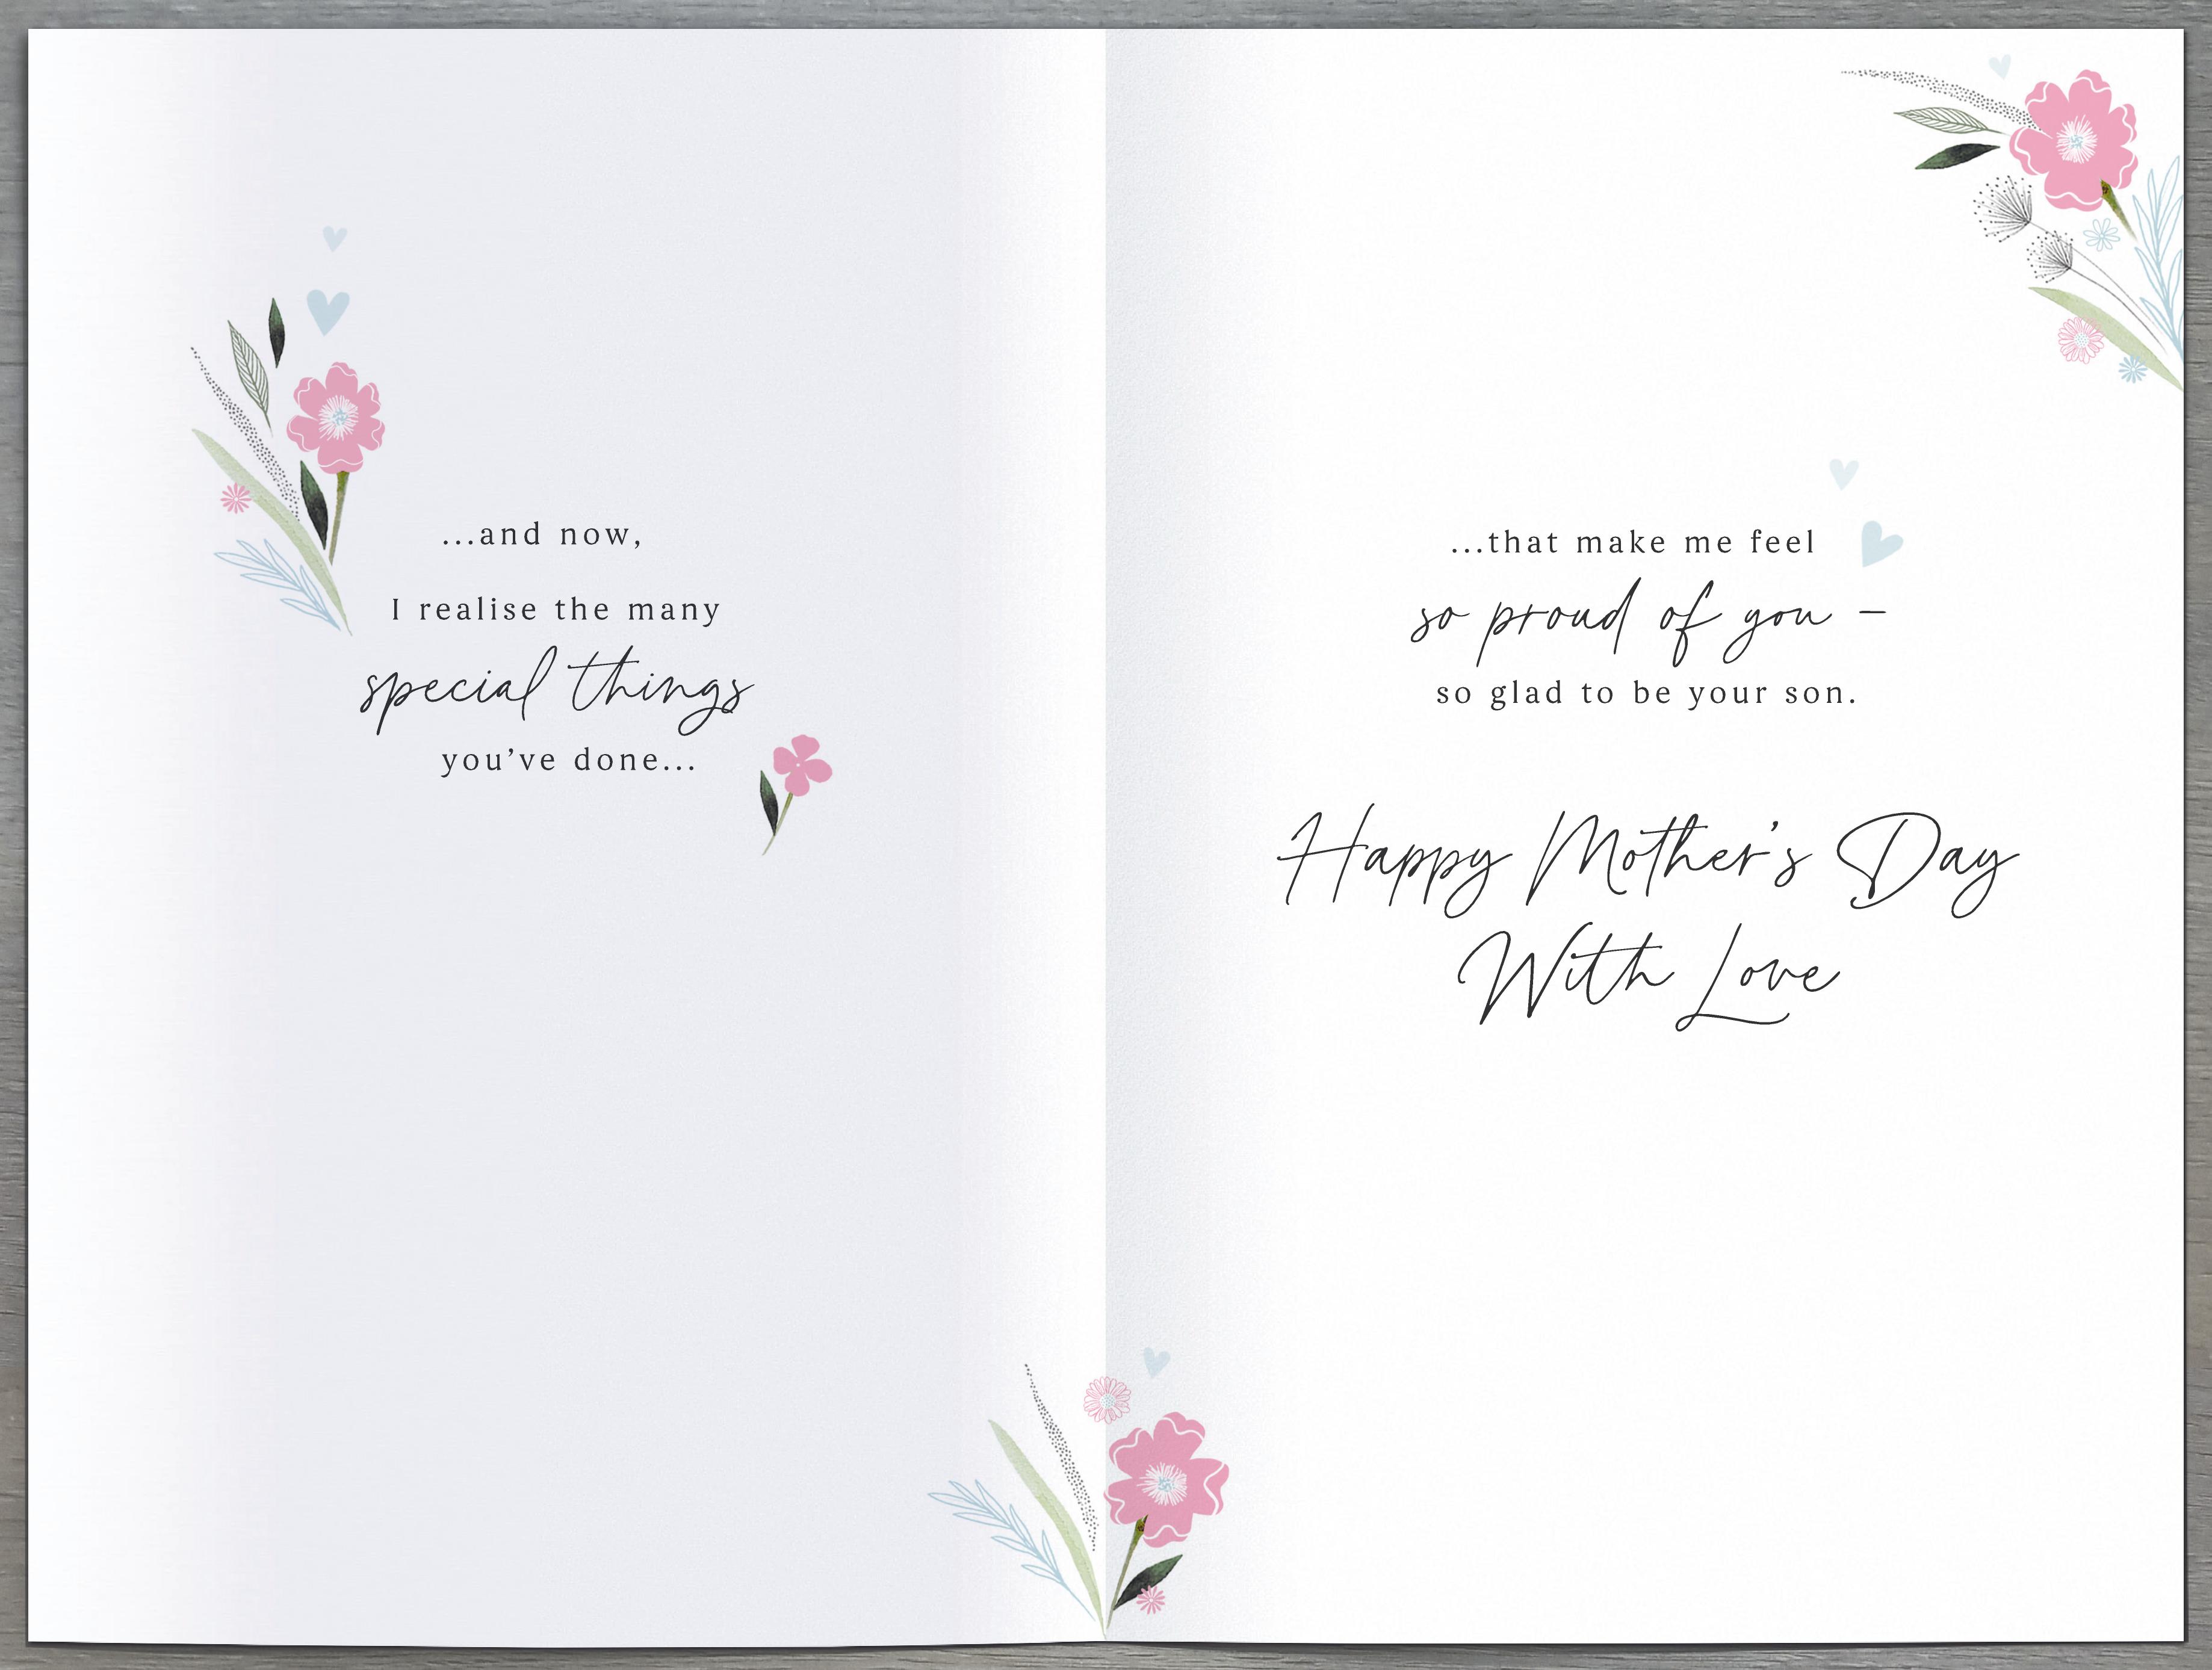 ...and now,
I realise the many
special things
you've done...
...that make me feel
so proud of you –
so glad to be your son.
Happy Mother's Day
With Love